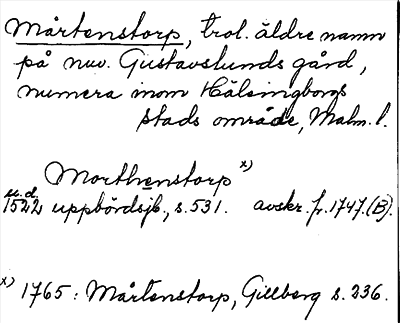 Mårtenstorp, trol. äldre namn
på nuv. Gustavslunds gård,
numera inom Hälsingborgs
stads område, Malm. l.
Morthenstorp x)
u.d.
1522 uppbördsjb., s. 531. avskr. fr. 1747. (B).
x) 1765: Mårtenstorp, Gillberg s. 236.